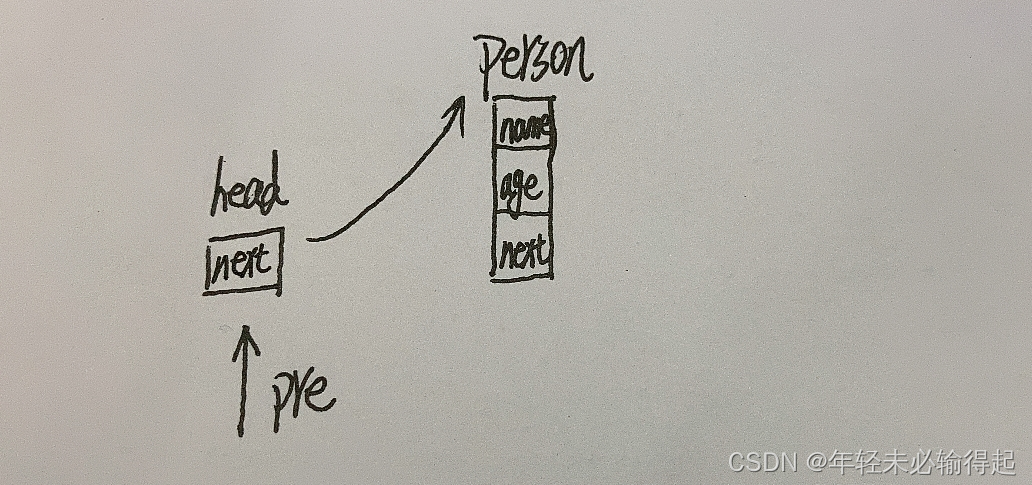 person
name
age
next
head
next
pre
CSDN @年轻未必输得起